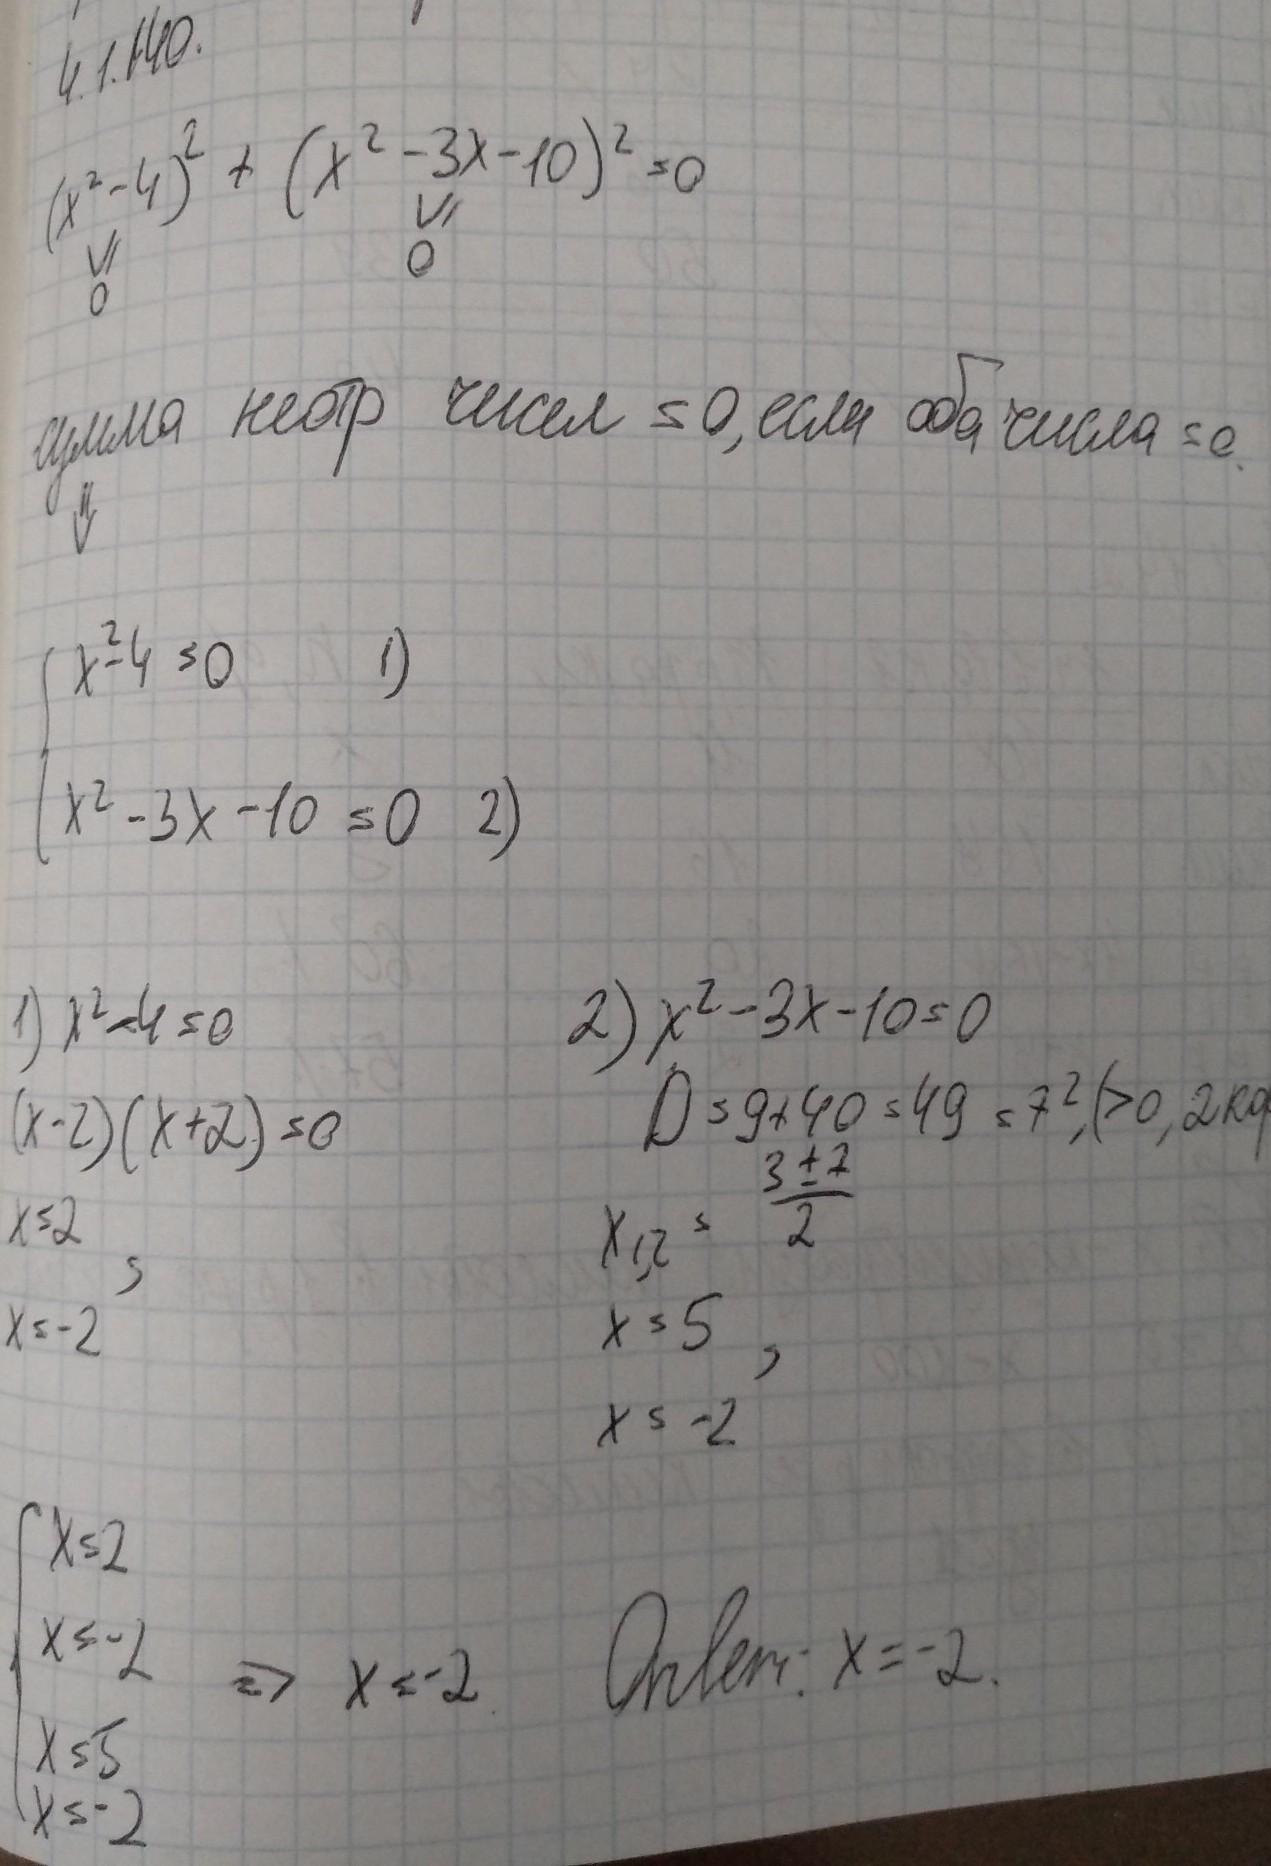 4.1.140.
(x² - 4)² + (x² - 3x - 10)² = 0
≥ ≥
0 0
сумма неотр чисел = 0, если оба числа = 0.
⇓
{ x² - 4 = 0 1)
{ x² - 3x - 10 = 0 2)
1) x² - 4 = 0 2) x² - 3x - 10 = 0
(x - 2)(x + 2) = 0 D = 9 + 40 = 49 = 7², (>0, 2 к
x = 2 , x₁,₂ = (3 ± 7)/2
x = -2 x = 5 ,
x = -2
{ x = 2
x = -2
x = 5
x = -2 => x = -2. Ответ: x = -2.